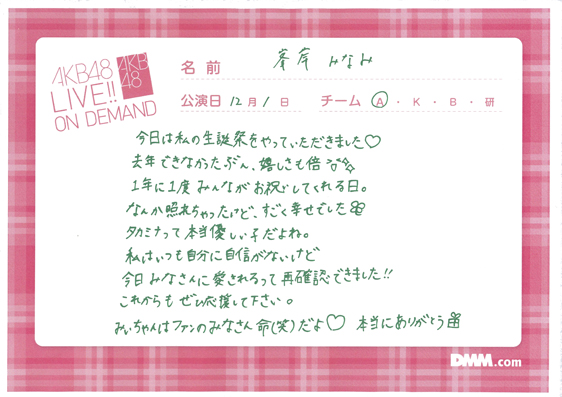 AKB48
LIVE!!
ON DEMAND
AKB
48
名前 峯岸 みなみ
公演日 12月1日 チーム A・K・B・研
今日は私の生誕祭をやっていただきました♡
去年できなかったぶん、嬉しさも倍
1年に1度みんながお祝いしてくれる日。
なんか照れちゃったけど、すごく幸せでした
タカミナって本当優しい子だよね。
私はいつも自分に自信がないけど
今日みなさんに愛されるって再確認できました!!
これからもぜひ応援して下さい。
みぃちゃんはファンのみなさん命(笑)だよ♡ 本当にありがとう
DMM.com